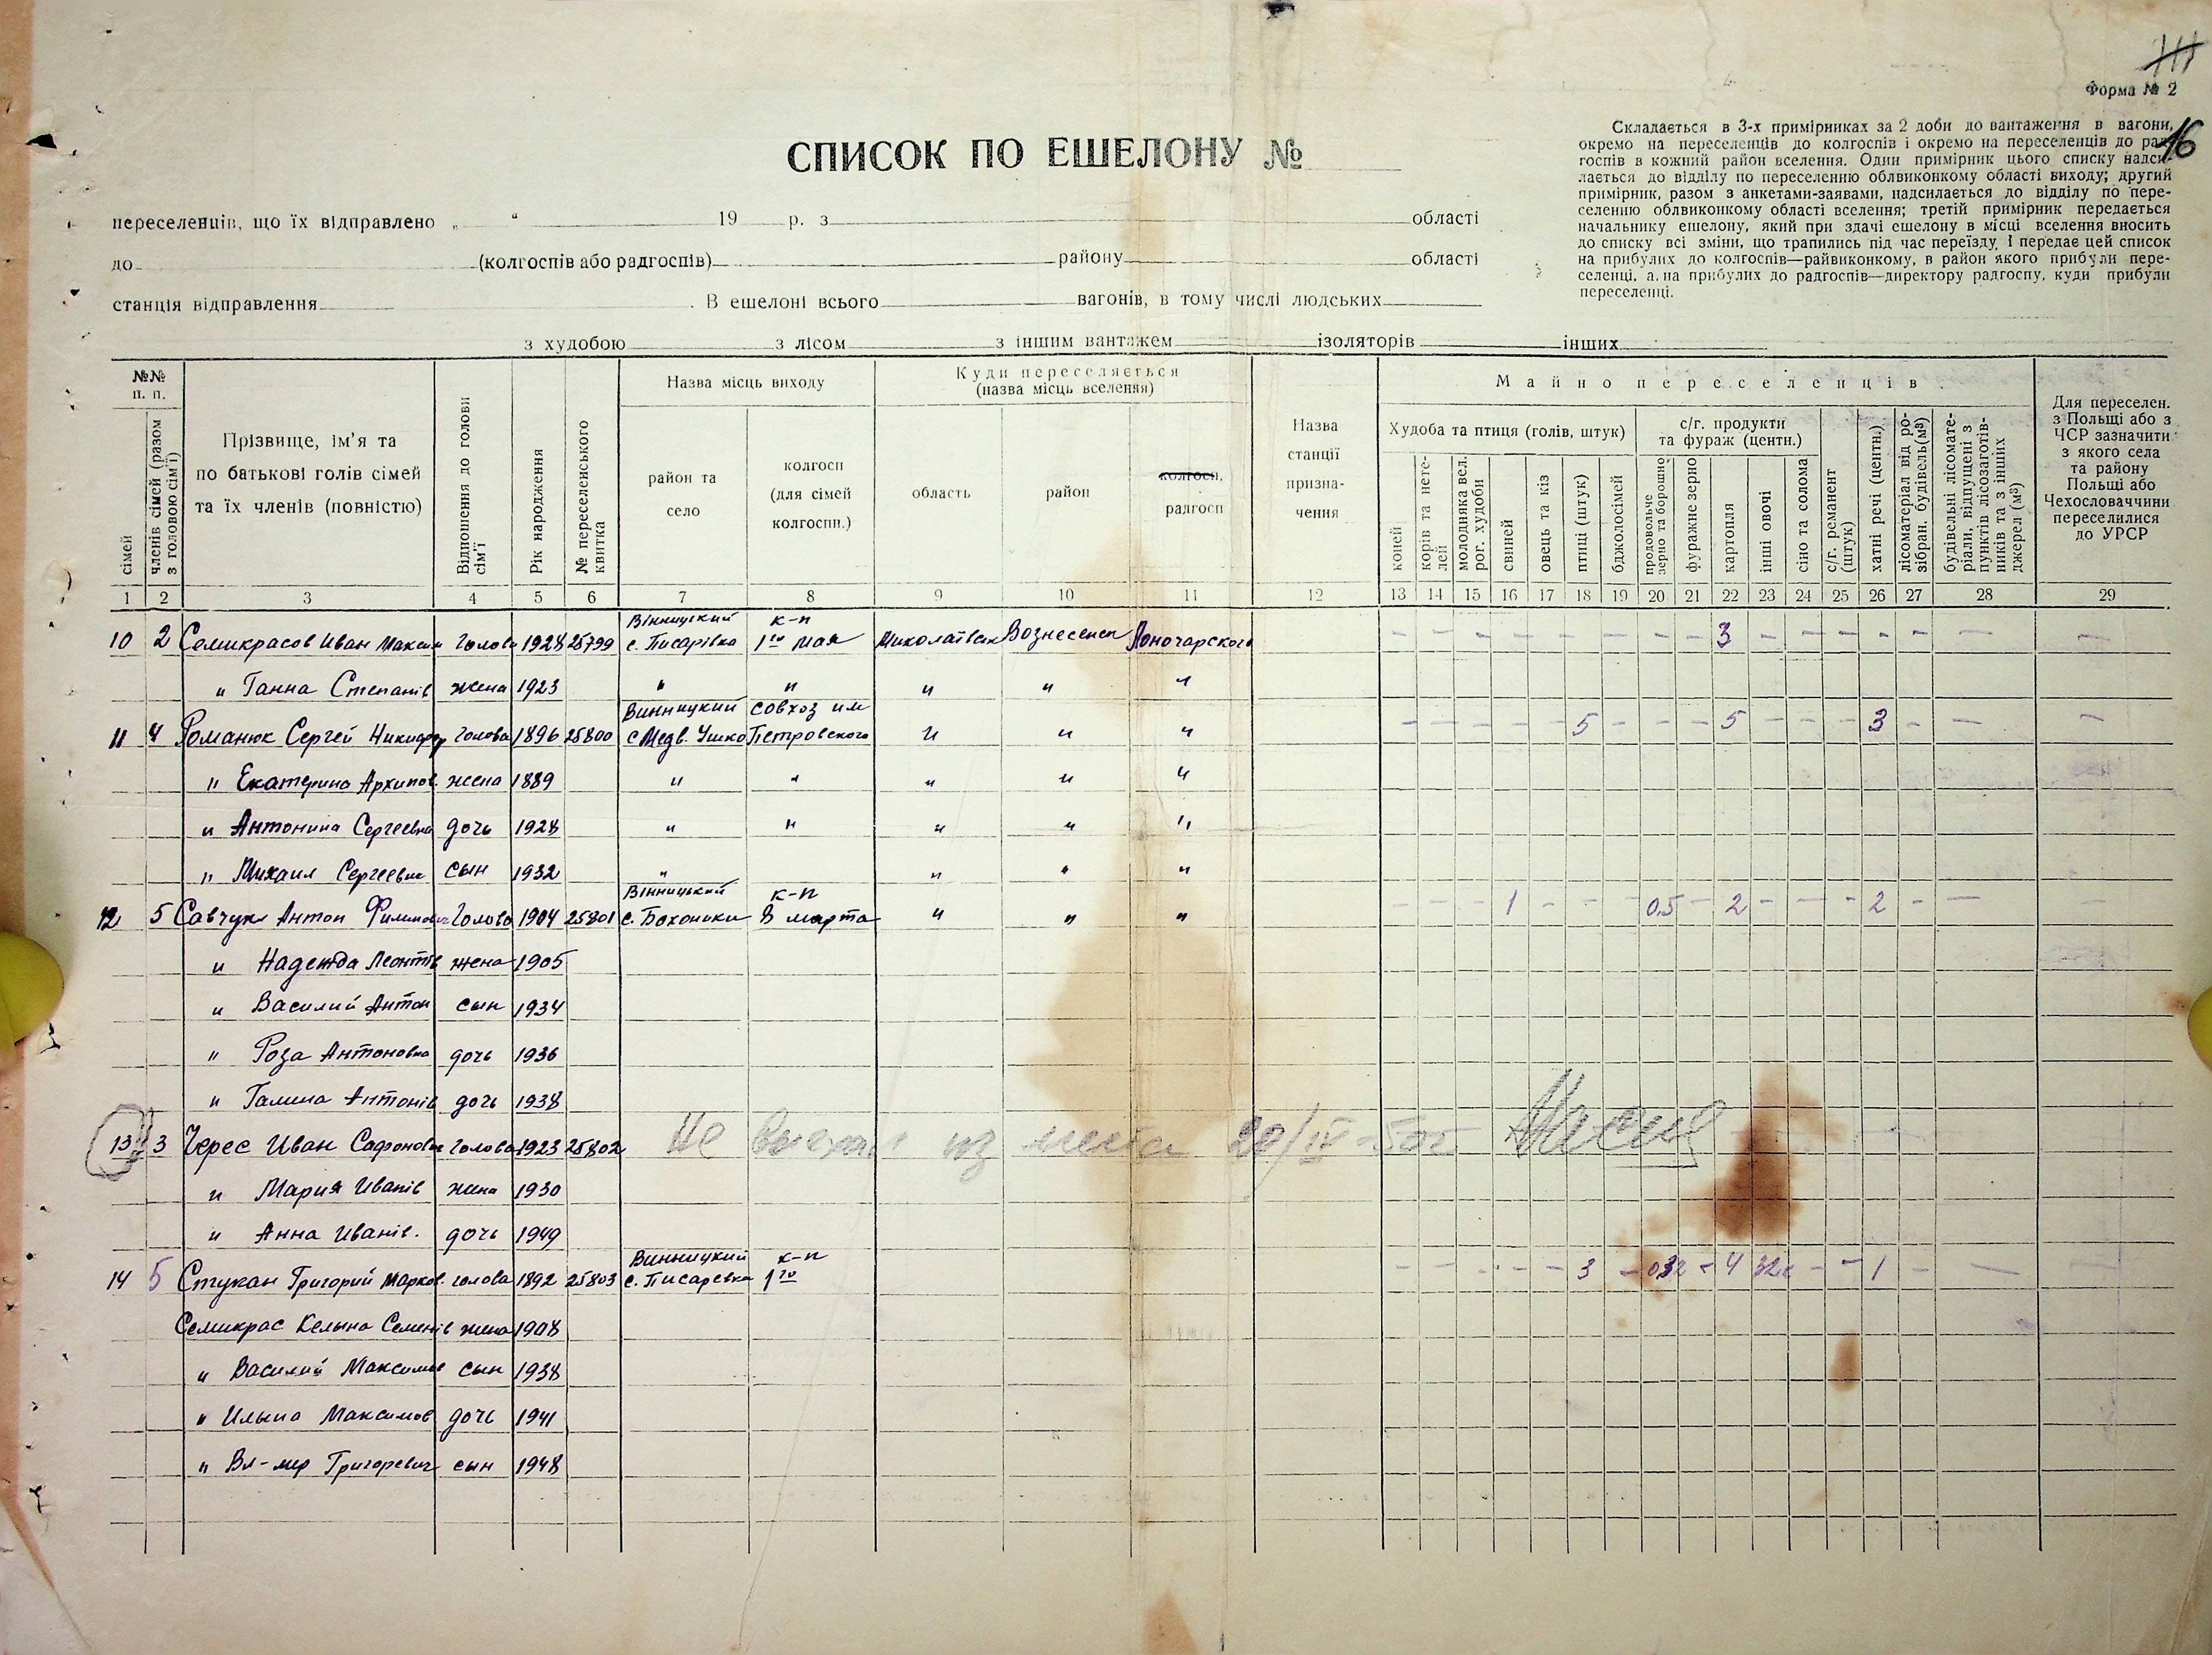 Форма № 2
16
СПИСОК ПО ЕШЕЛОНУ №
Складається в 3-х примірниках за 2 доби до вантаження в вагони,
окремо на переселенців до колгоспів і окремо на переселенців до рад-
госпів в кожний район вселення. Один примірник цього списку надси-
лається до відділу по переселенню облвиконкому області виходу; другий
примірник, разом з анкетами-заявами, надсилається до відділу по пере-
селенню облвиконкому області вселення; третій примірник передається
начальнику ешелону, який при здачі ешелону в місці вселення вносить
до списку всі зміни, що трапились під час переїзду, і передає цей список
на прибулих до колгоспів—райвиконкому, в район якого прибули пере-
селенці, а на прибулих до радгоспів—директору радгоспу, куди прибули
переселенці.
переселенців, що їх відправлено „ “ 19 р. з області
до (колгоспів або радгоспів) району області
станція відправлення . В ешелоні всього вагонів, в тому числі людських
з худобою з лісом з іншим вантажем ізоляторів інших
№№ п. п.
сімей
членів сімей (разом з головою сім'ї)
Прізвище, ім'я та
по батькові голів сімей
та їх членів (повністю)
Відношення до голови сім'ї
Рік народження
№ переселенського квитка
Назва місць виходу
район та село
колгосп (для сімей колгоспн.)
Куди переселяється
(назва місць вселення)
область
район
колгосп, радгосп
Назва станції призна-чення
Майно переселенців
Худоба та птиця (голів, штук)
коней
корів та нете-лей
молодняка вел. рог. худоби
свиней
овець та кіз
птиці (штук)
бджолосімей
с/г. продукти
та фураж (центн.)
продовольче зерно та борошно
фуражне зерно
картопля
інші овочі
сіно та солома
с/г. реманент (штук)
хатні речі (центн.)
лісоматеріал від ро-зібран. будівель(м³)
будівельні лісомате-ріали, відпущені з пунктів лісозаготів-ників та з інших джерел (м³)
Для переселен.
з Польщі або з
ЧСР зазначити
з якого села
та району
Польщі або
Чехословаччини
переселилися
до УРСР
1 2 3 4 5 6 7 8 9 10 11 12 13 14 15 16 17 18 19 20 21 22 23 24 25 26 27 28 29
Вінницкий к-п
10 2 Семикрасов Иван Максим Голова 1928 25799 с. Писарівка 1го Мая Миколаївск Вознесенск Лоночарского - - - - - - - - - 3 - - - - - - -
" Ганна Степанів жена 1923 " " " " "
Винницкий совхоз им
11 4 Романюк Сергей Никифор Голова 1896 25800 с Медв. Ушко Петровского " " " - - - - - 5 - - - 5 - - - 3 - - -
" Екатерина Архипов. жена 1889 " " " " "
" Антонина Сергеевна дочь 1928 " " " " "
" Михаил Сергеевич сын 1932 " " " "
Вінницький к-п
12 5 Савчук Антон Филимович Голова 1904 25801 с. Бохоники 8 марта " " " - - - 1 - - - 0.5 - 2 - - - 2 - - -
" Надежда Леонтів жена 1905
" Василий Антон сын 1934
" Роза Антоновна дочь 1936
" Галина Антонів дочь 1938
13 3 Черес Иван Сафонович Голова 1923 25802 Не выехал из места 20/IV-50г
" Мария Иванів жена 1930
" Анна Иванів. дочь 1949
Винницкий к-п
14 5 Стукан Григорий Марков. голова 1892 25803 с. Писаревка 1го - - - - - 3 - 032 - 4 32к - - 1 - -
Семикрас Келына Семенів жена 1908
" Василий Максимов сын 1938
" Ильина Максимов дочь 1941
" Вл-мир Григоревич сын 1948